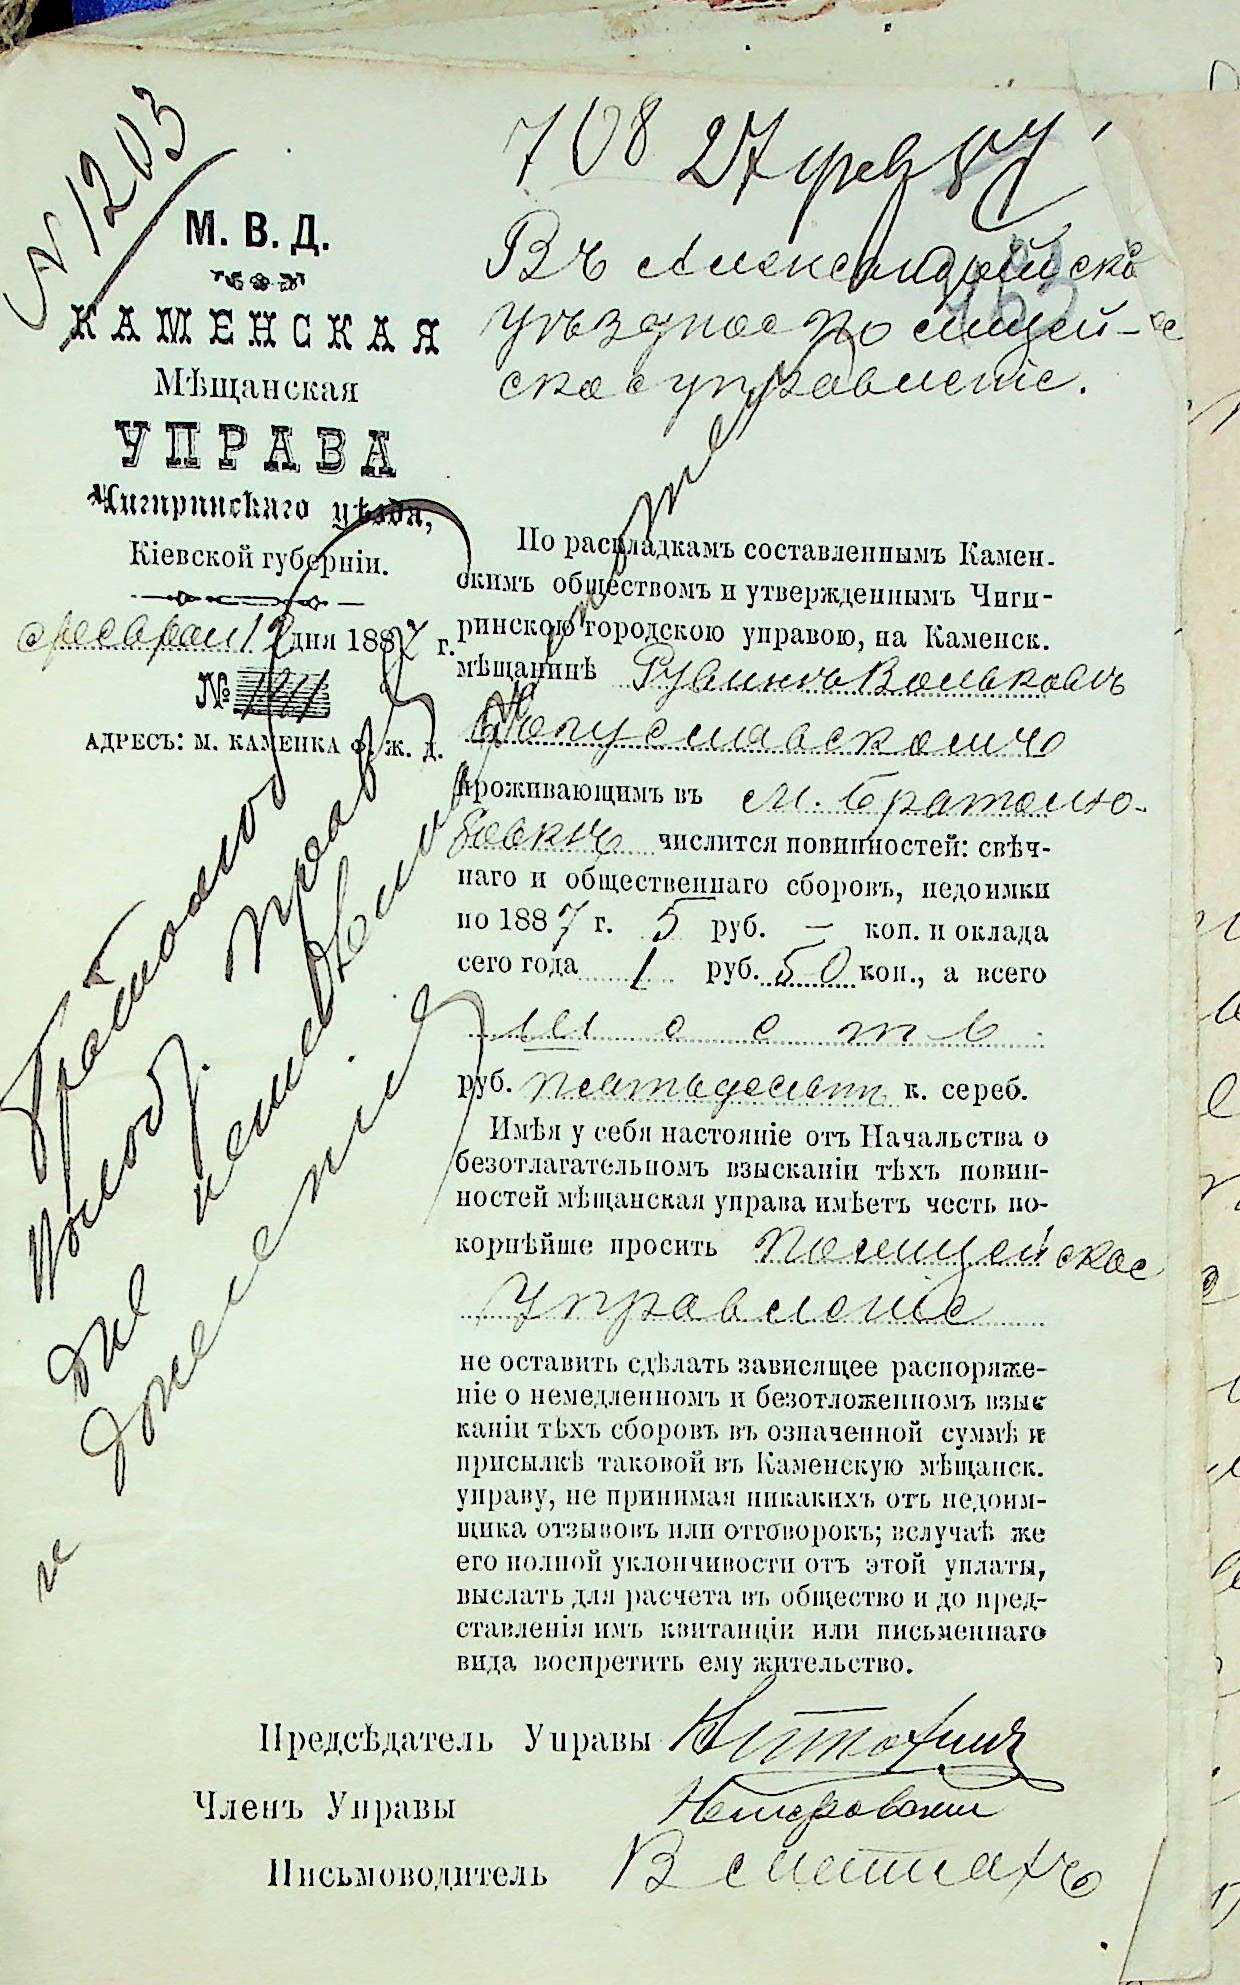 N 1203
708 27 фев 87
М. В. Д.
КАМЕНСКАЯ
Мѣщанская
УПРАВА
Чигиринскаго уѣзда,
Кіевской губерніи.
февраля 12 дня 1887 г.
№ 1911
АДРЕСЪ: М. КАМЕНКА Ф. Ж. Д.
Въ Александрійское
уѣздное полицей-
ское управленіе.
По раскладкамъ составленнымъ Камен-
скимъ обществомъ и утвержденнымъ Чиги-
ринскою городскою управою, на Каменск.
мѣщанинѣ Рувинъ Вольковъ
Богуславскомъ
проживающимъ въ м. Братолю-
бовкѣ числится повинностей: свѣч-
наго и общественнаго сборовъ, недоимки
по 1887 г. 5 руб. – коп. и оклада
сего года 1 руб. 50 коп., а всего
шесть
руб. пятьдесятъ к. сереб.
Имѣя у себя настояніе отъ Начальства о
безотлагательномъ взысканіи тѣхъ повин-
ностей мѣщанская управа имѣетъ честь по-
корнѣйше просить полицейское
Управленіе
не оставить сдѣлать зависящее распоряже-
ніе о немедленномъ и безотложенномъ взыс
каніи тѣхъ сборовъ въ означенной суммѣ и
присылкѣ таковой въ Каменскую мѣщанск.
управу, не принимая никакихъ отъ недоим-
щика отзывовъ или отговорокъ; вслучаѣ же
его полной уклончивости отъ этой уплаты,
выслать для расчета въ общество и до пред-
ставленія имъ квитанціи или письменнаго
вида воспретить ему жительство.
Предсѣдатель Управы
Членъ Управы
Письмоводитель
Братолюб
волост. прав
для